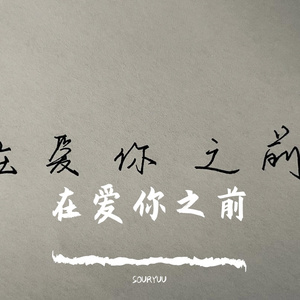 在爱你之前
在爱你之前
SOURYUU